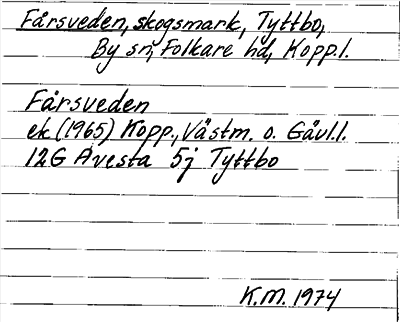 Fårsveden, skogsmark, Tyttbo,
By sn, Folkare hd, Kopp.l.
Fårsveden
ek (1965) Kopp., Västm. o. Gävl.l.
12G Avesta 5j Tyttbo
K.M. 1974